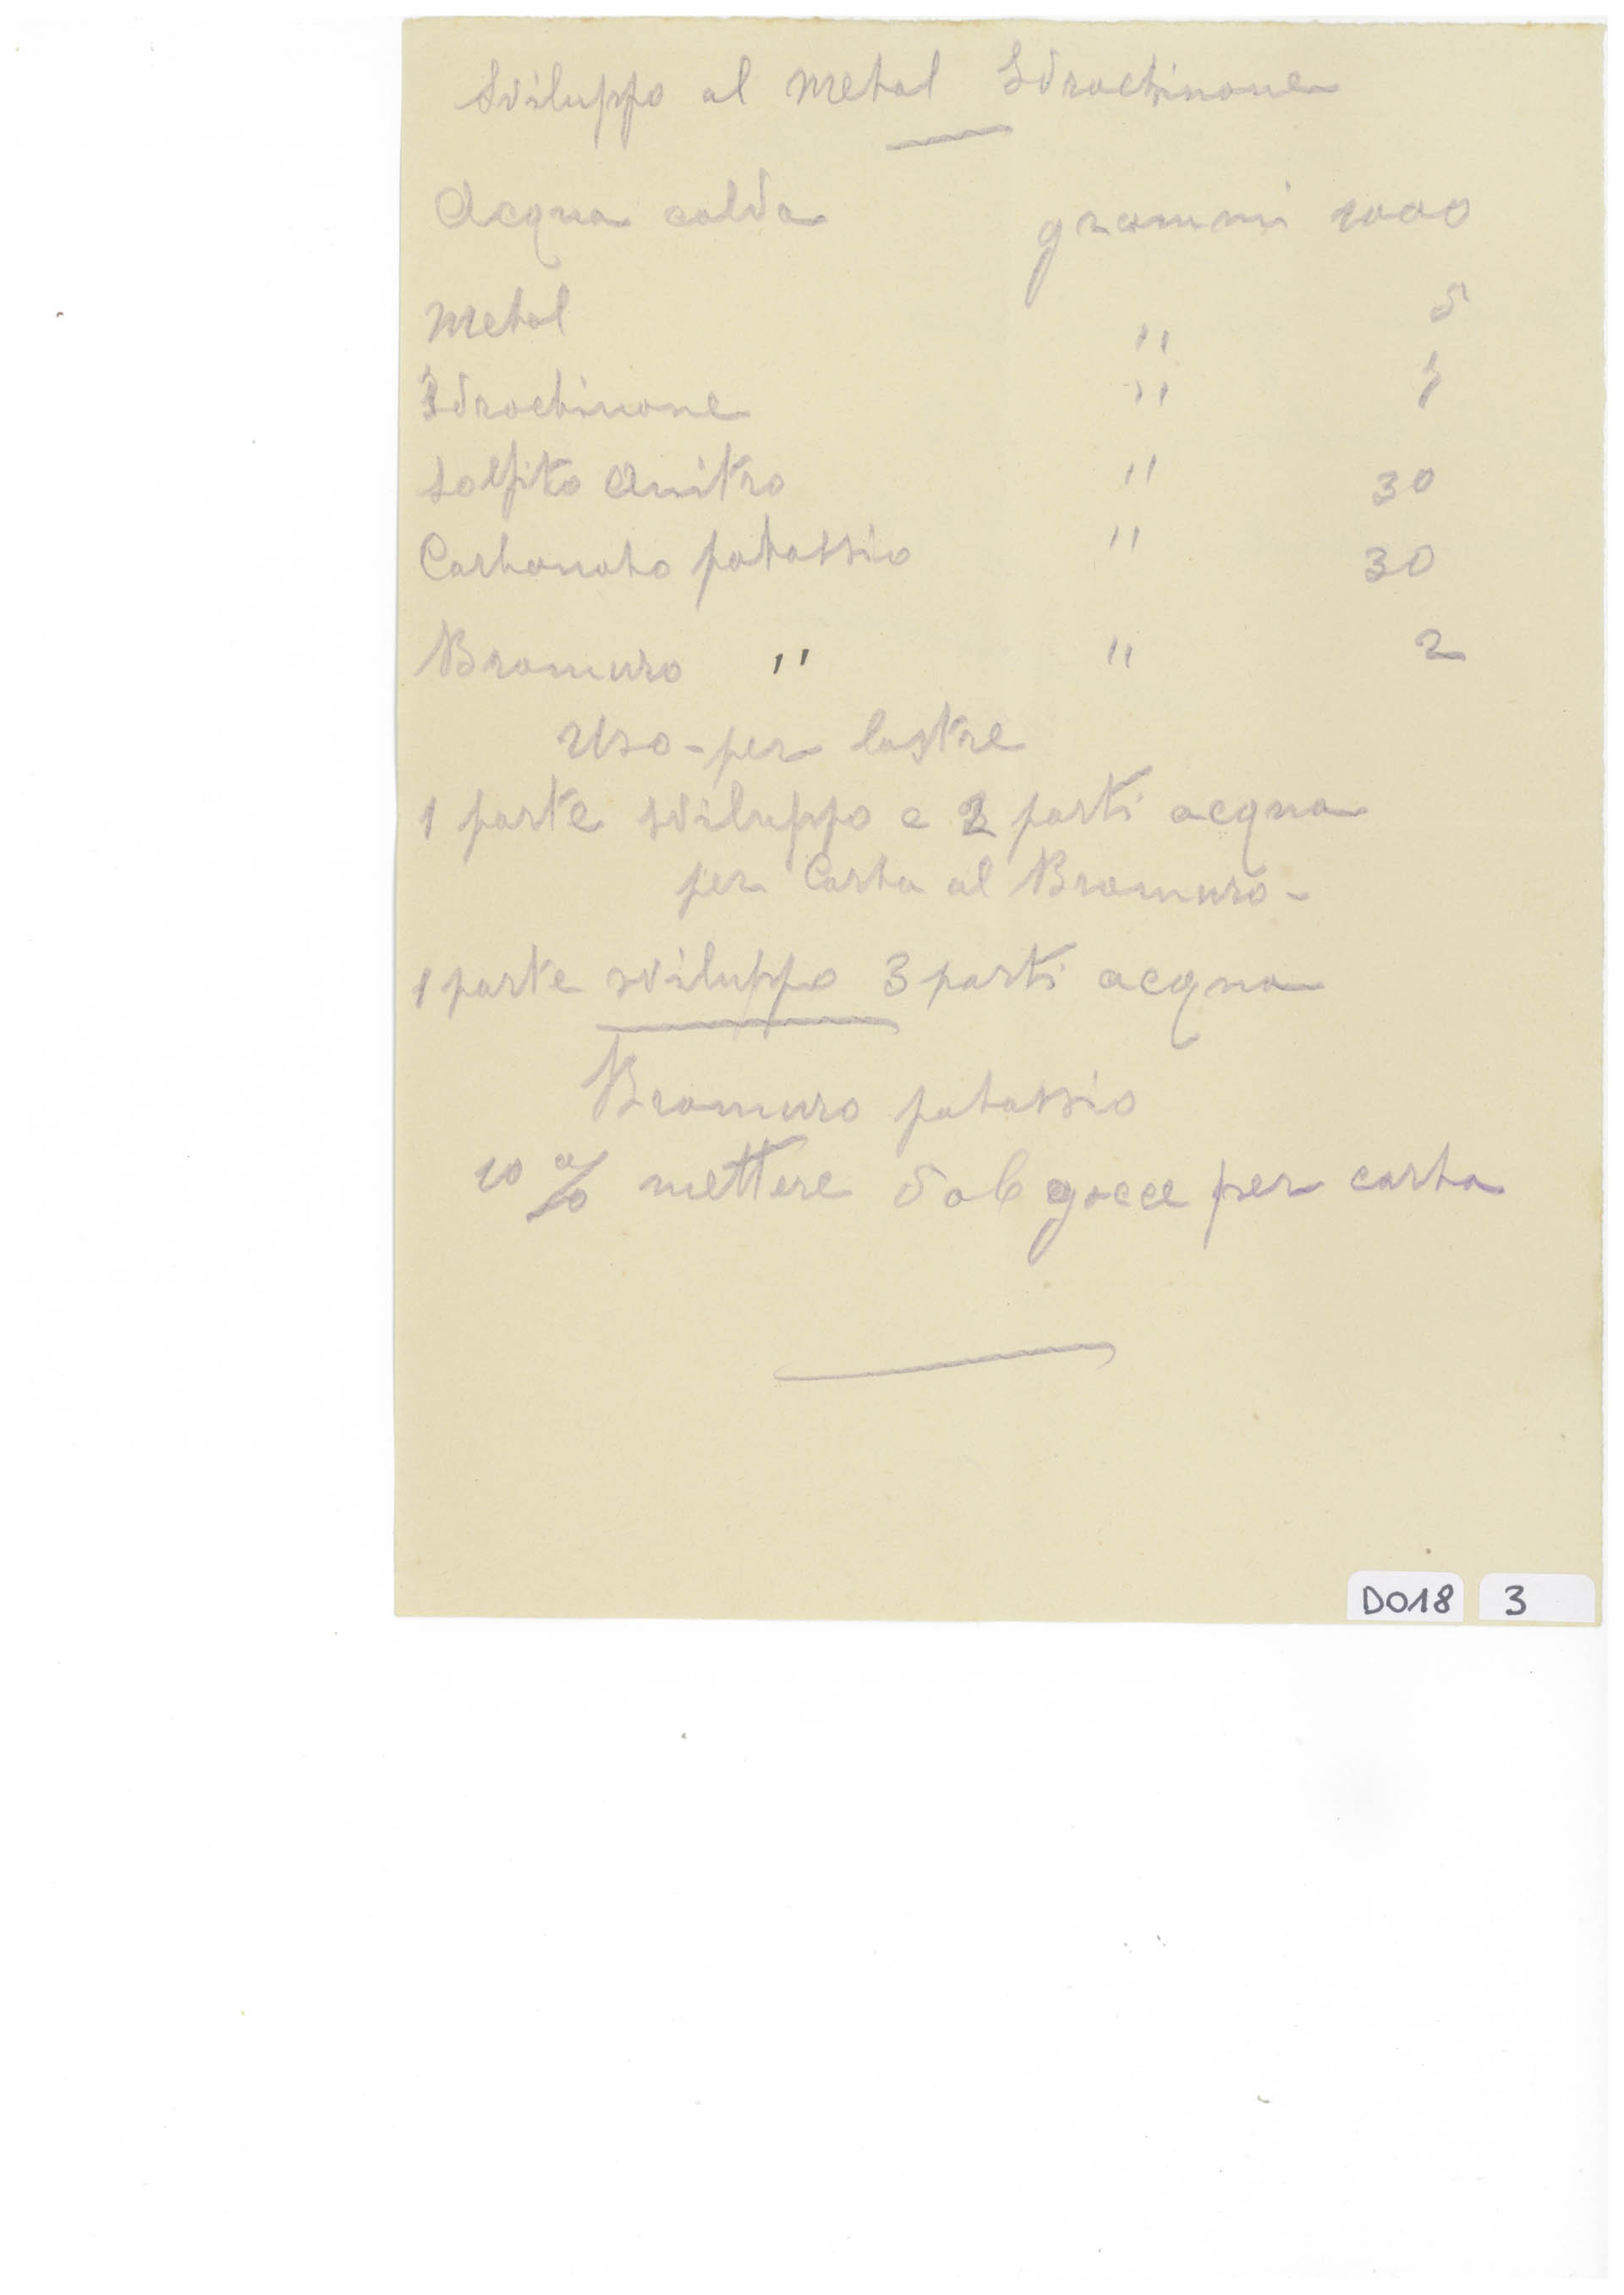 Sviluppo al Metol Idrochinone
Acqua calda grammi 1000
Metol " 5
Idrochinone "
Solfito Anitro " 30
Carbonato potassio " 30
Bromuro " " 2
Uso - per lastre
1 parte sviluppo e 2 parti acqua
per Carta al Bromuro -
1 parte sviluppo 3 parti acqua
Bromuro potassio
10 % mettere 5 o 6 gocce per carta
D018 3